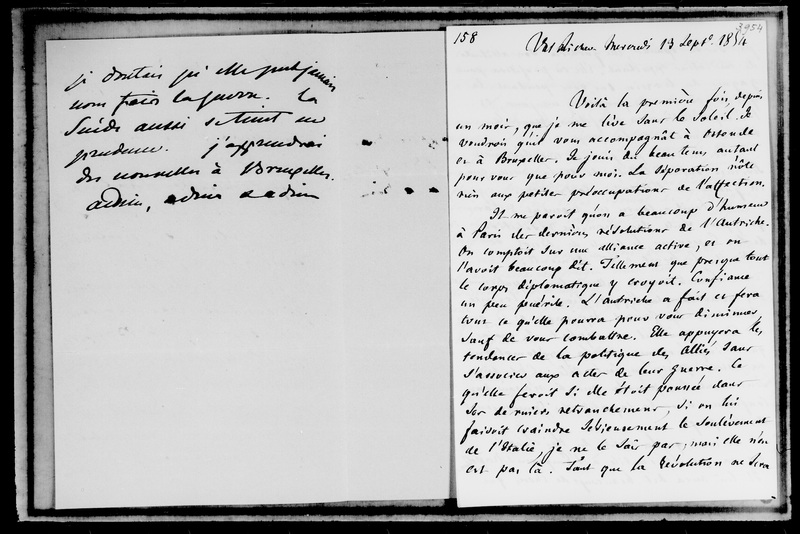 je doutais qu'elle peut jamais
nous faire la guerre. La
Suède aussi se tient en
prudence. j'apprendrai
des nouvelles à Bruxelles.
adieu, adieu & adieu
3954
158
Val Richer Mercredi 13 Septe 1854
Voilà la première fois, depuis
un mois, que je me lève sans le soleil. Je
voudrois qu'il vous accompagnât à Ostende
et à Bruxelles. Je jouis du beau tems autant
pour vous que pour moi. La séparation n'ôte
rien aux petites préoccupations de l'affection.
Il me paroit qu'on a beaucoup d'humeur
à Paris des dernières résolutions de l'Autriche.
On comptoit sur une alliance active, et on
l'avoit beaucoup dit. Tellement que presque tout
le corps diplomatique y croyoit. Confiance
un peu puérile. L'Autriche a fait et fera
tout ce qu'elle pourra pour vous diminuer,
sauf de vous combattre. Elle appuyera les
tendances de la politique des Alliés sans
s'associer aux actes de leur guerre. Ce
qu'elle feroit si elle étoit poussée dans
ses derniers retranchemens, si on lui
faisoit craindre sérieusement le soulèvement
de l'Italie, je ne le sais pas ; mais elle n'en
est pas là. Tant que la Révolution ne sera